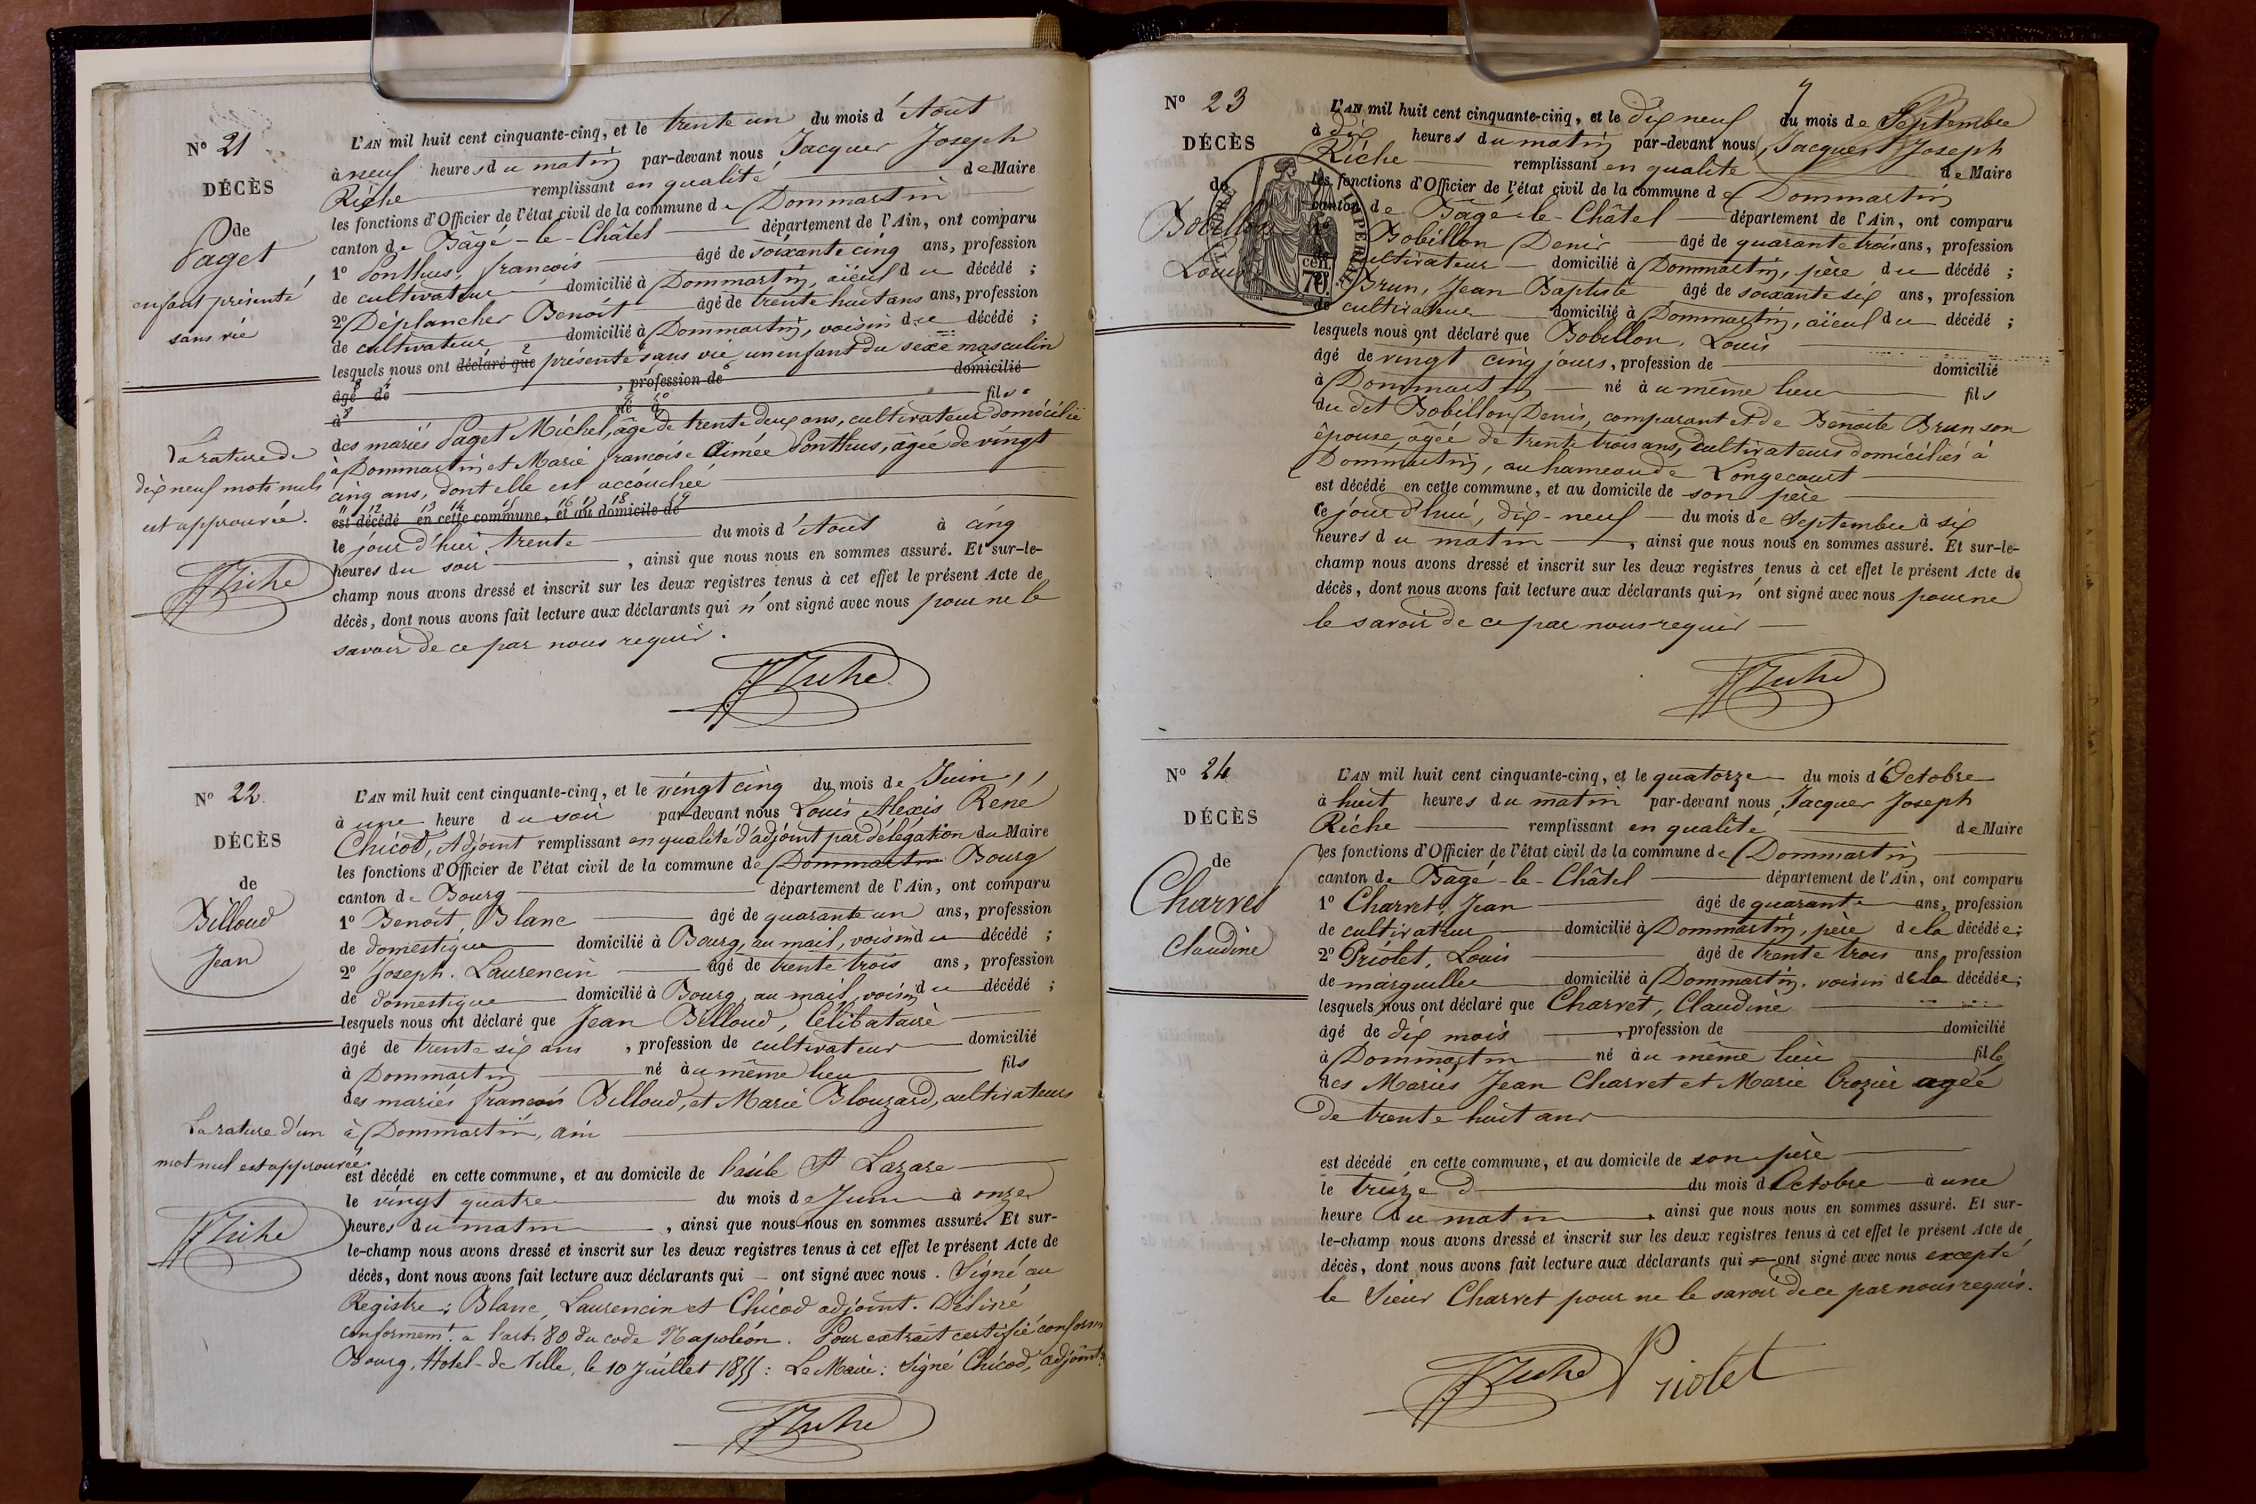 N° 21
DÉCÈS
de
Paget
enfant présenté
sans vie
L'AN mil huit cent cinquante-cinq, et le trente un du mois d'Août
à neuf heures du matin par-devant nous Jacques Joseph
Riche remplissant en qualité de Maire
les fonctions d'Officier de l'état civil de la commune de Dommartin
canton de Bâgé-le-Châtel département de l'Ain, ont comparu
1° Ponthus, françois âgé de soixante cinq ans, profession
de cultivateur domicilié à Dommartin, aïeul du décédé ;
2° Déplanches Benoit âgé de trente huit ans ans, profession
de cultivateur domicilié à Dommartin, voisin du décédé ;
lesquels nous ont déclaré que présenté sans vie un enfant du sexe masculin
âgé de , profession de domicilié
à né à fils
des mariés Paget Michel, âgé de trente deux ans, cultivateur domicilié
à Dommartin et Marie françoise Aimée Ponthus, agée de vingt
cinq ans, dont elle est accouchée
est décédé en cette commune, et au domicile de
le jour d'hier trente du mois d'Août à cinq
heures du soir , ainsi que nous nous en sommes assuré. Et sur-le-
champ nous avons dressé et inscrit sur les deux registres tenus à cet effet le présent Acte de
décès, dont nous avons fait lecture aux déclarants qui n'ont signé avec nous pour ne le
savoir de ce par nous requis.
La rature de
dix neuf mots nuls
est approuvée.
JJRiche
JJRiche
N° 22
DÉCÈS
de
Billoud
Jean
L'AN mil huit cent cinquante-cinq, et le vingt cinq du mois de Juin
à une heure du soir par-devant nous Louis Alexis Réné
Chicod, Adjoint remplissant en qualité d'adjoint par délégation du Maire
les fonctions d'Officier de l'état civil de la commune de Dommartin Bourg
canton de Bourg département de l'Ain, ont comparu
1° Benoit, Blanc âgé de quarante un ans, profession
de domestique domicilié à Bourg, au mail, voisin du décédé ;
2° Joseph. Laurencin âgé de trente trois ans, profession
de domestique domicilié à Bourg, au mail, voisin du décédé ;
lesquels nous ont déclaré que Jean Billoud, Célibataire
âgé de trente six ans , profession de cultivateur domicilié
à Dommartin né au même lieu fils
des mariés françois Billoud, et Marie Blouzard, cultivateurs
à Dommartin, ain
est décédé en cette commune, et au domicile de l'asile St Lazare
le vingt quatre du mois de Juin à onze
heures du matin , ainsi que nous nous en sommes assuré. Et sur-
le-champ nous avons dressé et inscrit sur les deux registres tenus à cet effet le présent Acte de
décès, dont nous avons fait lecture aux déclarants qui ont signé avec nous. Signé au
Registre : Blanc, Laurencin et Chicod adjoint. Délivré
conformemt. a l'art. 80 du code Napoléon. Pour extrait certifié conforme
Bourg, Hotel-de Ville, le 10 Juillet 1855 : Le Maire : Signé Chicod, adjoint.
La rature d'un
mot nul est approuvée
JJRiche
JJRiche
N° 23
DÉCÈS
de
Bobillon
Louis
TIMBRE IMPERIAL
70 cen.
7
L'AN mil huit cent cinquante-cinq, et le dix neuf du mois de Septembre
à dix heures du matin par-devant nous Jacques Joseph
Riche remplissant en qualité de Maire
les fonctions d'Officier de l'état civil de la commune de Dommartin
canton de Bâgé-le-Châtel département de l'Ain, ont comparu
1° Bobillon Denis âgé de quarante trois ans, profession
de cultivateur domicilié à Dommartin, père du décédé ;
2° Brun, Jean Baptiste âgé de soixante six ans, profession
de cultivateur domicilié à Dommartin, aïeul du décédé ;
lesquels nous ont déclaré que Bobillon, Louis
âgé de vingt cinq jours, profession de domicilié
à Dommartin né au même lieu fils
du dit Bobillon Denis, comparant et de Benoite Brun son
épouse, âgée de trente trois ans, cultivateurs domiciliés à
Dommartin, au hameau de Longecourt
est décédé en cette commune, et au domicile de son père
ce jour d'hui, dix-neuf du mois de Septembre à six
heures du matin , ainsi que nous nous en sommes assuré. Et sur-le-
champ nous avons dressé et inscrit sur les deux registres tenus à cet effet le présent Acte de
décès, dont nous avons fait lecture aux déclarants qui n'ont signé avec nous pour ne
le savoir de ce par nous requis
JJRiche
N° 24
DÉCÈS
de
Charvet
Claudine
L'AN mil huit cent cinquante-cinq, et le quatorze du mois d'Octobre
à huit heures du matin par-devant nous Jacques Joseph
Riche remplissant en qualité de Maire
les fonctions d'Officier de l'état civil de la commune de Dommartin
canton de Bâgé-le-Châtel département de l'Ain, ont comparu
1° Charvet, Jean âgé de quarante ans, profession
de cultivateur domicilié à Dommartin, père de la décédée ;
2° Priolet, Louis âgé de trente trois ans, profession
de marguillier domicilié à Dommartin, voisin de la décédée ;
lesquels nous ont déclaré que Charvet, Claudine
âgé de dix mois , profession de domicilié
à Dommartin né au même lieu fille
des Mariés Jean Charvet et Marie Crozier agée
de trente huit ans
est décédé en cette commune, et au domicile de son père
le treize du mois d'Octobre à une
heure du matin , ainsi que nous nous en sommes assuré. Et sur-
le-champ nous avons dressé et inscrit sur les deux registres tenus à cet effet le présent Acte de
décès, dont nous avons fait lecture aux déclarants qui ont signé avec nous excepté
le Sieur Charvet pour ne le savoir de ce par nous requis.
JJRiche Priolet